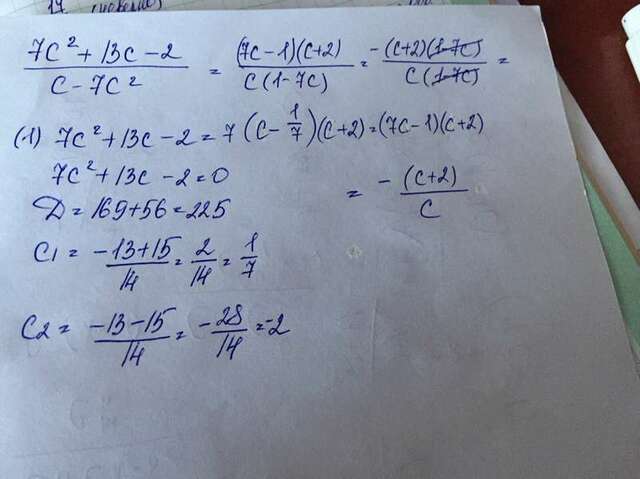 17
7c² + 13c - 2 / c - 7c² = (7c - 1)(c + 2) / c(1 - 7c) = -(c + 2)(1 - 7c) / c(1 - 7c) =
(1) 7c² + 13c - 2 = 7(c - 1/7)(c + 2) = (7c - 1)(c + 2)
7c² + 13c - 2 = 0
= -(c + 2) / c
D = 169 + 56 = 225
c1 = -13 + 15 / 14 = 2/14 = 1/7
c2 = -13 - 15 / 14 = -28/14 = -2